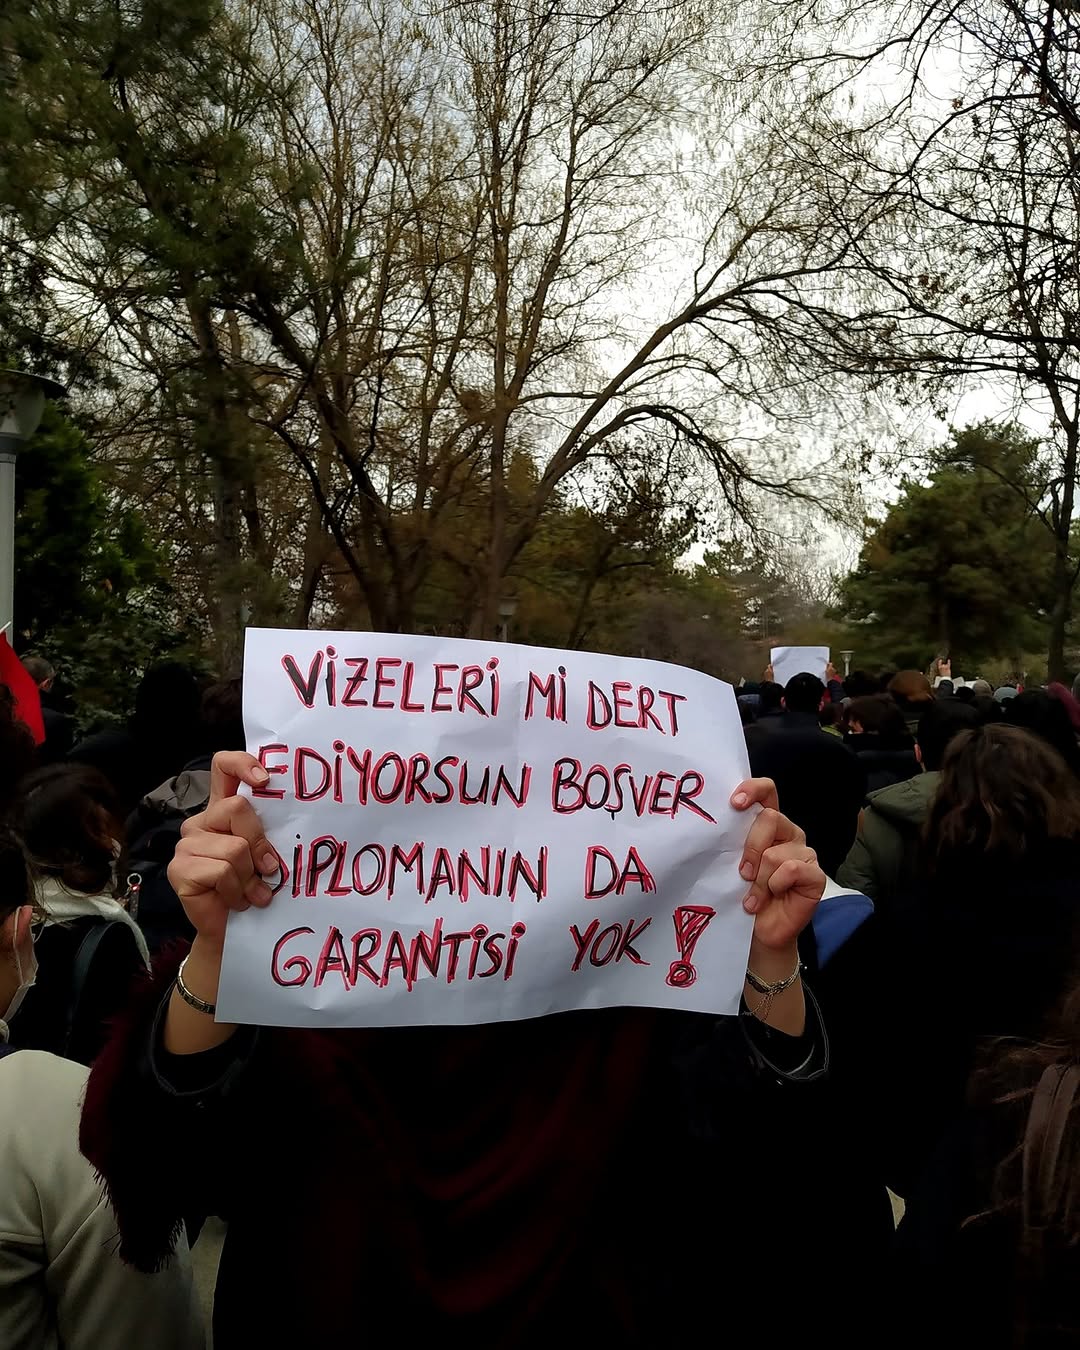 VİZELERİ Mİ DERT
EDİYORSUN BOŞVER
DİPLOMANIN DA
GARANTİSİ YOK!